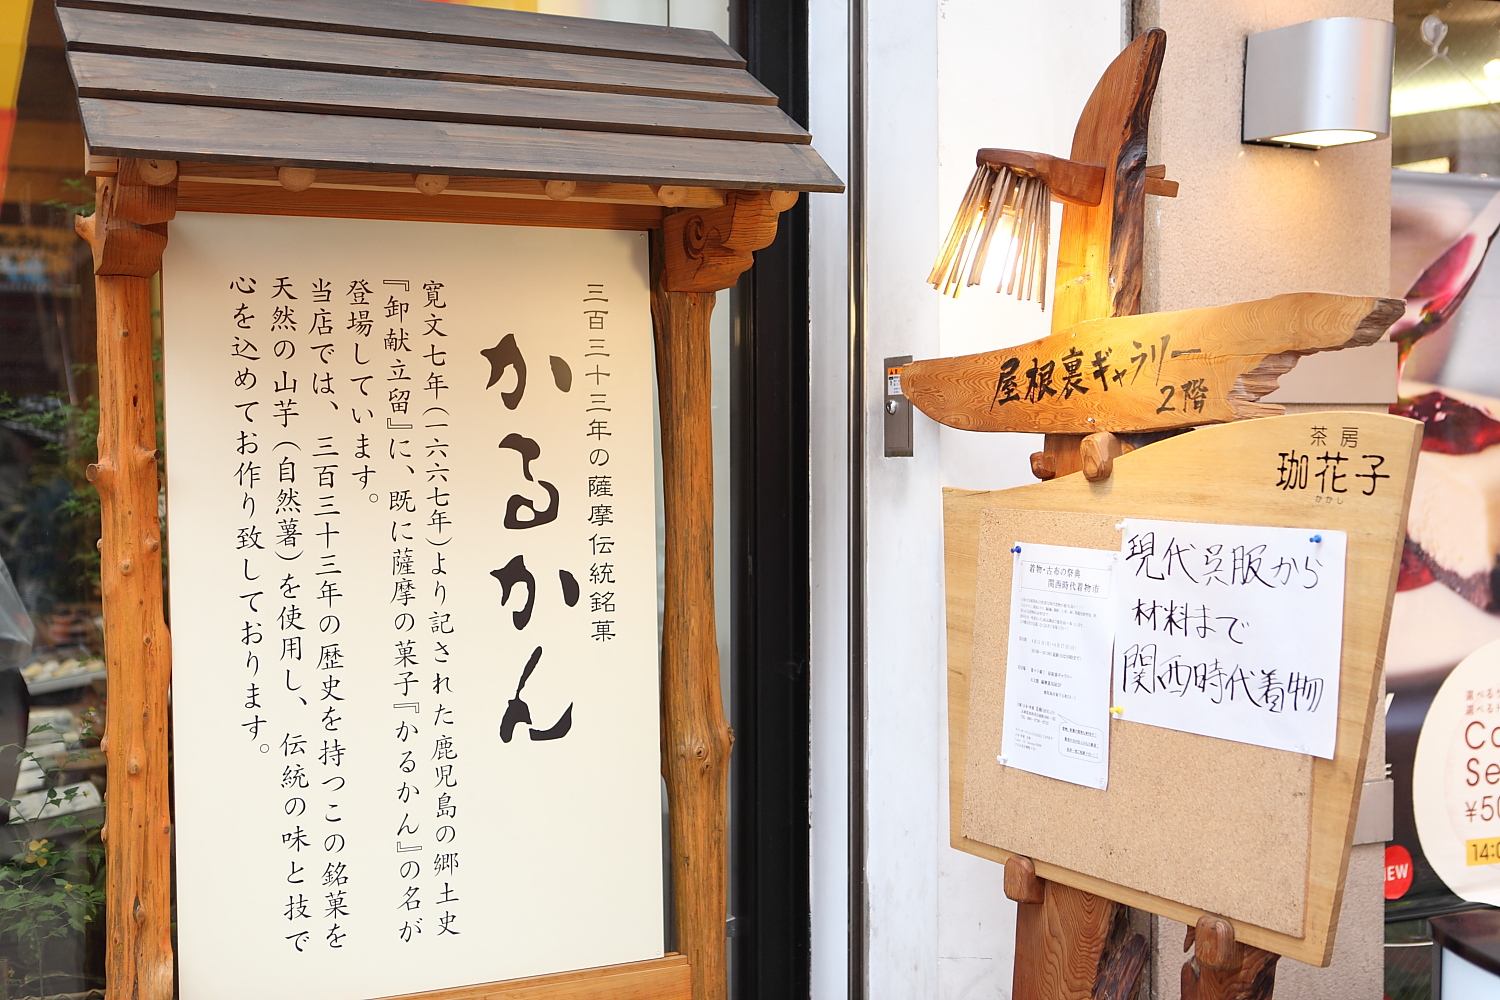 三百三十三年の薩摩伝統銘菓
かるかん
寛文七年(一六六七年)より記された鹿児島の郷土史
『卸献立留』に、既に薩摩の菓子『かるかん』の名が
登場しています。
当店では、三百三十三年の歴史を持つこの銘菓を
天然の山芋(自然薯)を使用し、伝統の味と技で
心を込めてお作り致しております。
屋根裏ギャラリー
2階
茶房
珈花子
かかし
着物・古布の祭典
関西時代着物市
現代呉服から
材料まで
関西時代着物
選べる
選べる
Co
Se
¥50
14:0
NEW